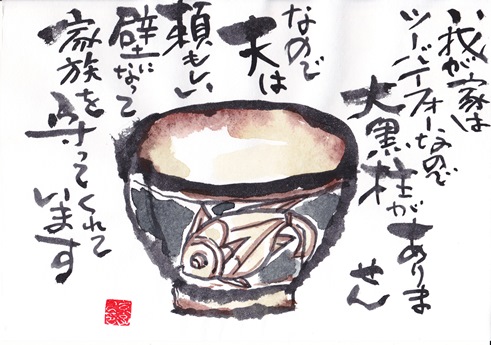 我が家は
ツーバイフォーなので
大黒柱がありません
なので
夫は
頼もしい
壁になって
家族を
守ってくれて
います